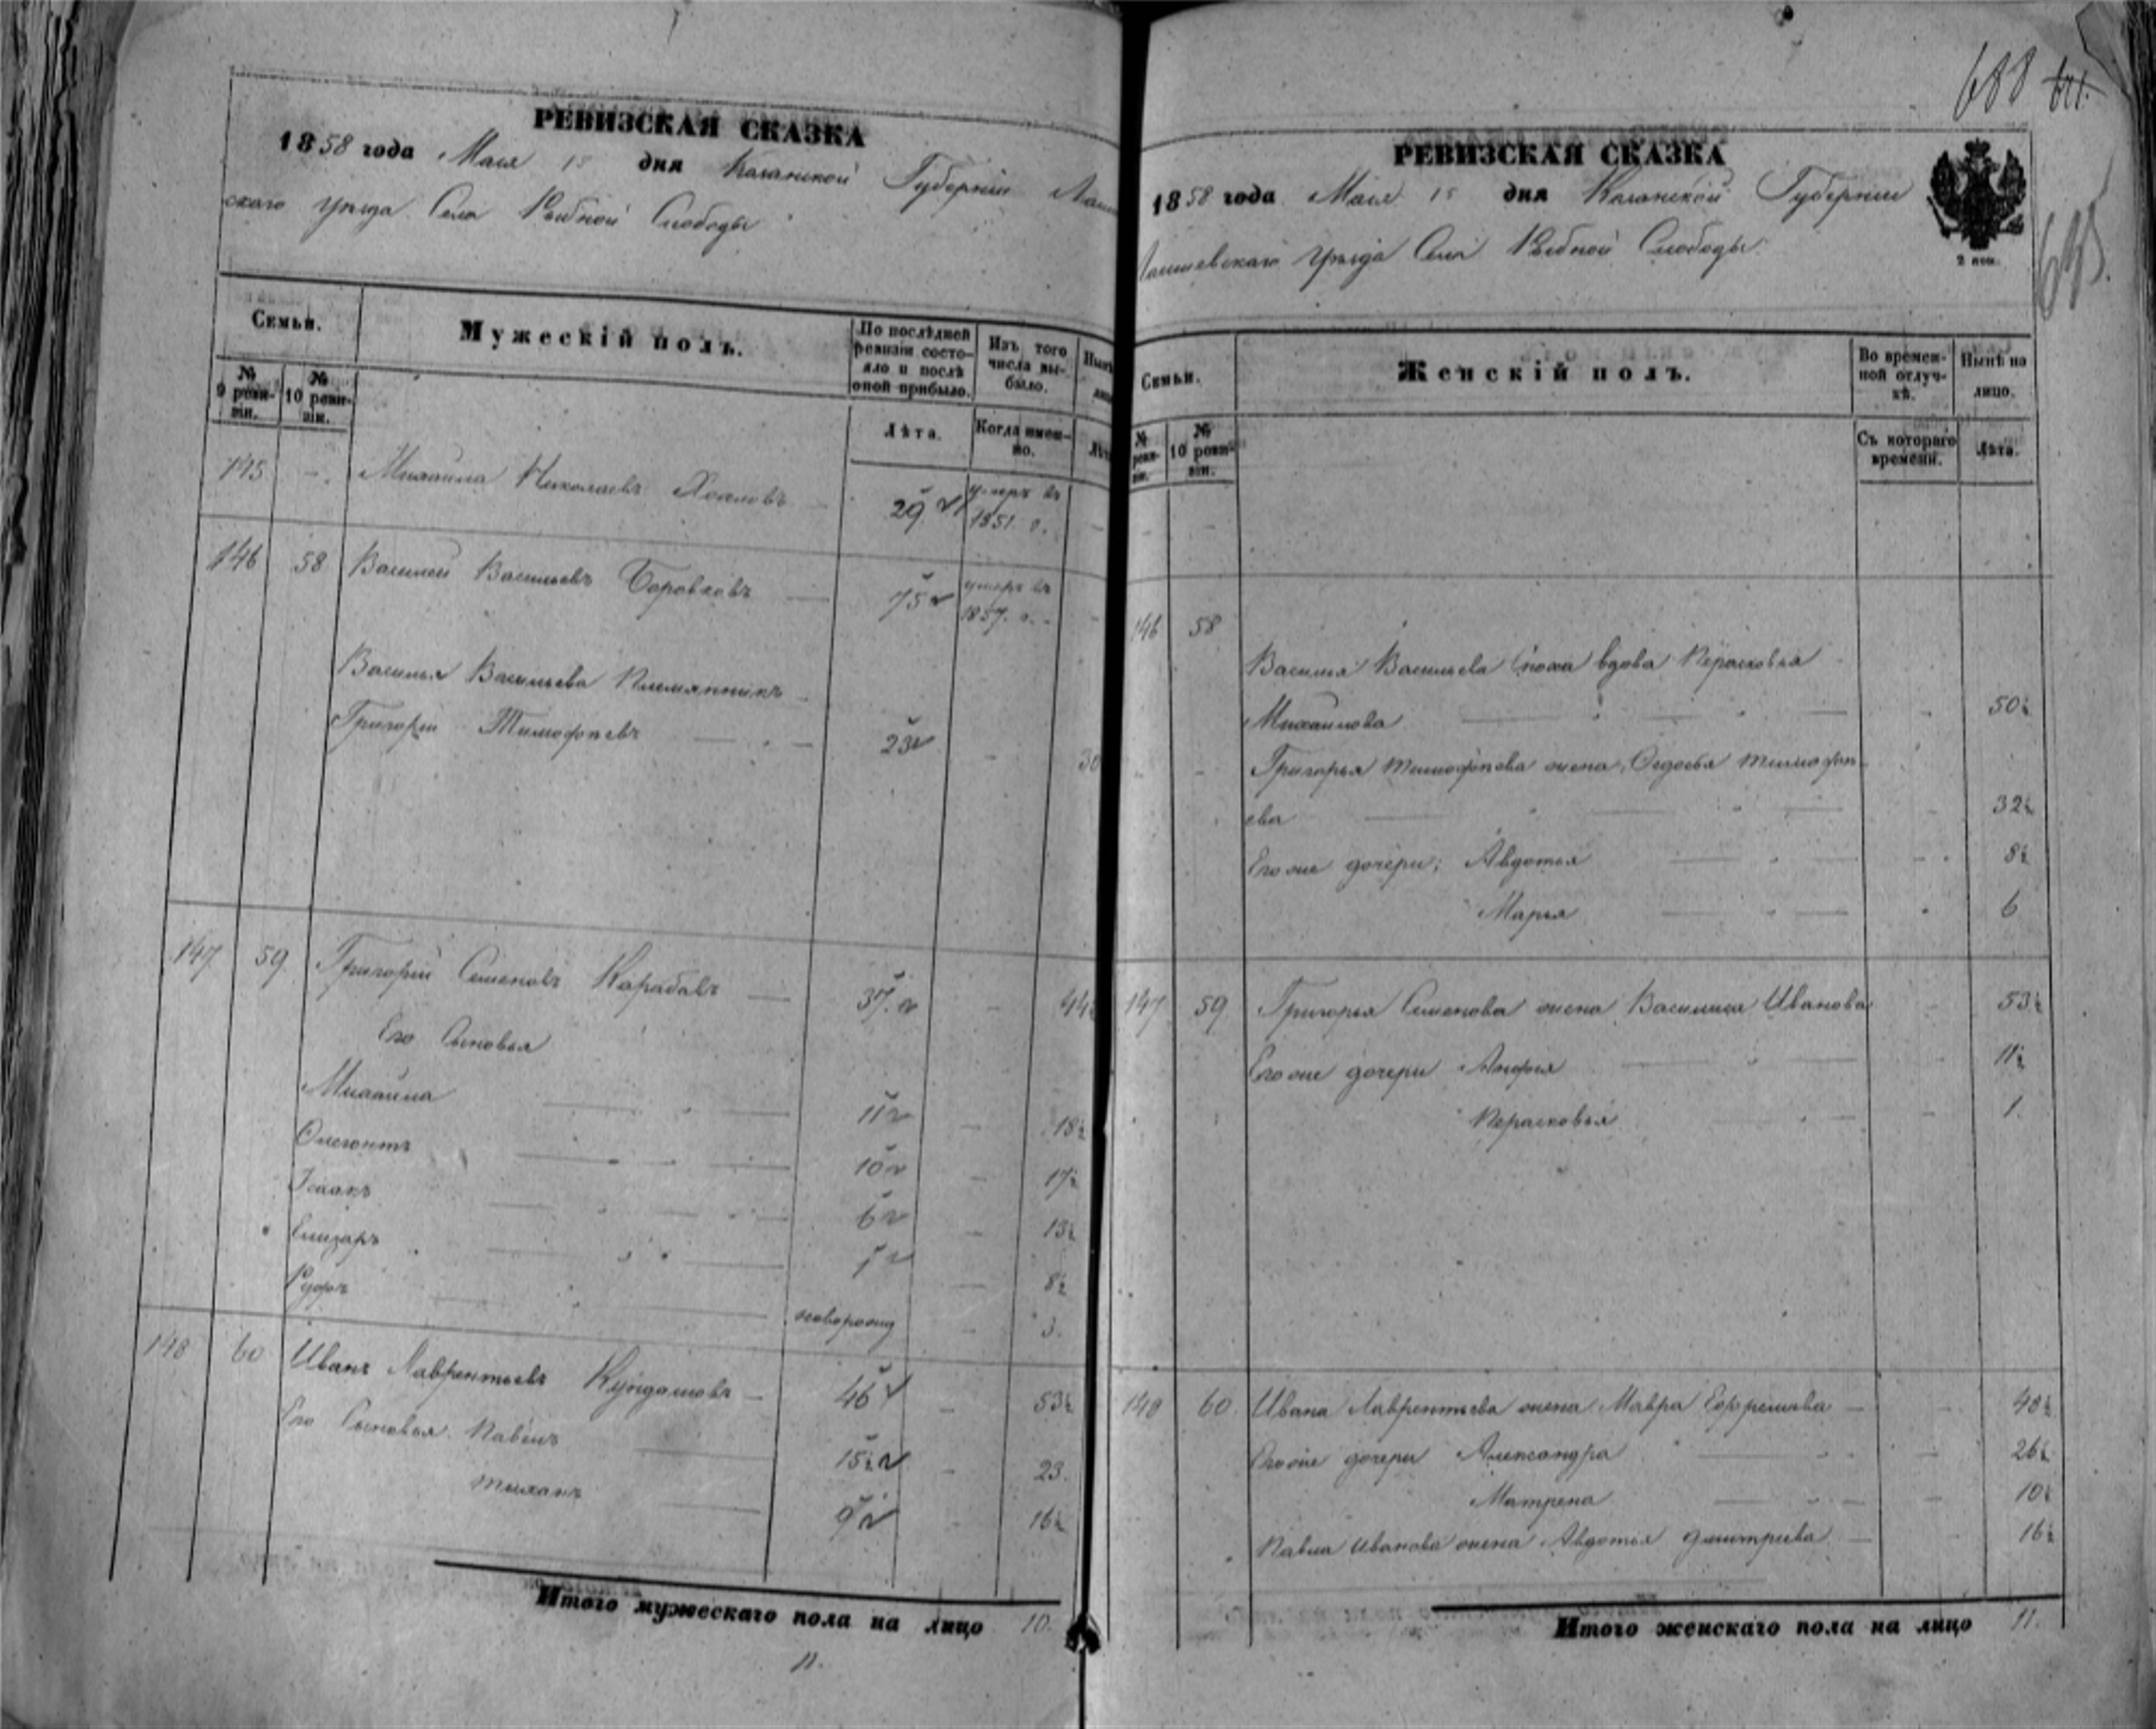 РЕВИЗСКАЯ СКАЗКА
1858 года Мая 15 дня Казанской Губернии Лаи
скаго уѣзда Села Рыбной Слободы
Семьи.
Мужескій полъ.
По послѣдней ревизіи состояло и послѣ оной прибыло.
Изъ того числа выбыло.
Нынѣ
№ 9 ревизіи.
№ 10 ревизіи.
Лѣта.
Когда именно.
Лѣт
145 - Михайла Николаевъ 29 умеръ въ 1851 г.
146 58 Василей Васильевъ Боровковъ 75 умеръ въ 1857 г.
Василья Васильева племянникъ
Григорій Тимофѣевъ 23 - 30
147 59 Григорій Семеновъ Карабаевъ 37 - 44½
Его Сыновья
Михайла 11 - 18½
Олегонтъ 10 - 17½
Исаакъ 6 - 13½
Елизаръ 1 - 8½
Руфъ новорожд - 3.
148 60 Иванъ Лаврентьевъ Кундашовъ 46 - 53½
Его Сыновья Павелъ 15½ - 23.
Тиханъ 9 - 16½
Итого мужескаго пола на лицо 10.
11.
688
РЕВИЗСКАЯ СКАЗКА
1858 года Мая 15 дня Казанской Губернии
Лаишевскаго уѣзда Села Рыбной Слободы.
2 коп.
Семьи.
Женскій полъ.
Во временной отлучкѣ.
Нынѣ на лицо.
№ реви- зіи.
№ 10 ревизіи.
Съ котораго времени.
Лѣта.
146 58
Василья Васильева Сноха вдова Перасковья
Михайлова 50½
Григорья Тимофѣева жена Федосья Тимофѣ-
ева 32½
Его же дочери; Авдотья 8½
Марья 6
147 59 Григорья Семенова жена Василиса Иванова 53½
Его же дочери 11½
Перасковья 1.
148 60 Ивана Лаврентьева жена Мавра Ефремова 48½
Его же дочери Александра 26½
Матрена 10½
Павла Иванова жена Авдотья Дмитриева 16½
Итого женскаго пола на лицо 11.